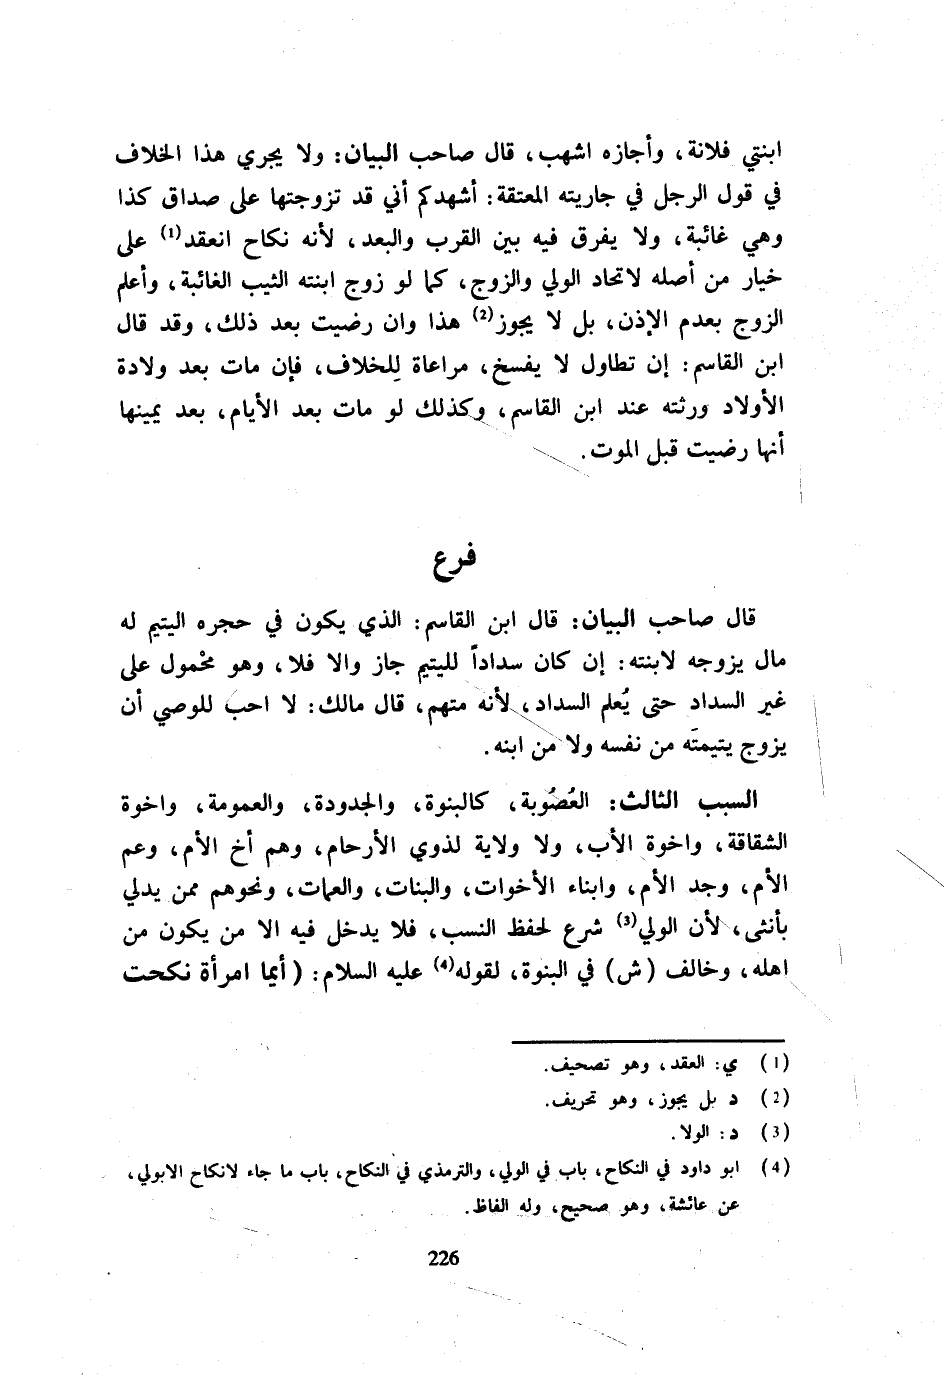 ابنتي فلانة، وأجازه اشهب، قال صاحب البيان: ولا يجري هذا الخلاف
في قول الرجل في جاريته المعتقة: أشهدكم أني قد تزوجتها على صداق كذا
وهي غائبة، ولا يفرق فيه بين القرب والبعد، لأنه نكاح انعقد(1) على
خيار من أصله لاتحاد الولي والزوج، كما لو زوج ابنته الثيب الغائبة، وأعلم
الزوج بعدم الإذن، بل لا يجوز(2) هذا وان رضيت بعد ذلك، وقد قال
ابن القاسم: إن تطاول لا يفسخ، مراعاة للخلاف، فإن مات بعد ولادة
الأولاد ورثته عند ابن القاسم، وكذلك لو مات بعد الأيام، بعد يمينها
أنها رضيت قبل الموت.
فرع
قال صاحب البيان: قال ابن القاسم: الذي يكون في حجره اليتيم له
مال يزوجه لابنته: إن كان سداداً لليتيم جاز والا فلا، وهو محْمول على
غير السداد حتى يُعلم السداد، لأنه متهم، قال مالك: لا احب للوصي أن
يزوج يتيمتَه من نفسه ولا من ابنه.
السبب الثالث: العُصُوبة، كالبنوة، والجدودة، والعمومة، واخوة
الشقاقة، واخوة الأب، ولا ولاية لذوي الأرحام، وهم أخ الأم، وعم
الأم، وجد الأم، وابناء الأخوات، والبنات، والعمات، ونحوهم ممن يدلي
بأنثى، لأن الولي(3) شرع لحفظ النسب، فلا يدخل فيه الا من يكون من
اهله، وخالف (ش) في البنوة، لقوله(4) عليه السلام: (أيما امرأة نكحت
(1) ي: العقد، وهو تصحيف.
(2) د بل يجوز، وهو تحريف.
(3) د: الولا.
(4) ابو داود في النكاح، باب في الولي، والترمذي في النكاح، باب ما جاء لانكاح الابولي،
عن عائشة، وهو صحيح، وله الفاظ.
226